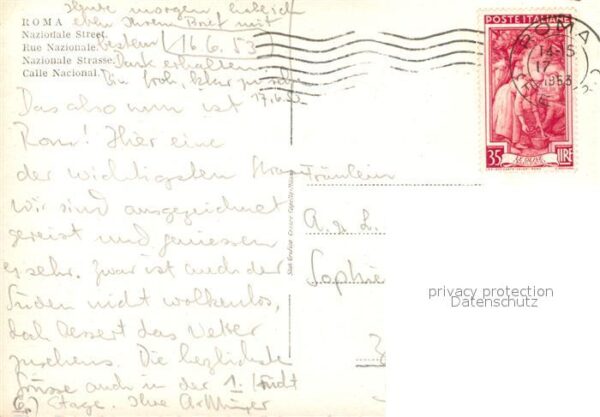 Heute morgen habe ich
eben Ihren Brief mit
bestem 16.6.53
Dank erhalten
Bin froh, zu
17.6.
ROMA
Nazionale Street.
Rue Nazionale.
Nazionale Strasse.
Calle Nacional.
Das also nun ist
Rom! Hier eine
der wichtigsten Strassen
Wir sind ausgezeichnet
gereist und geniessen
es sehr. Zwar ist auch der
Süden nicht wolkenlos,
doch bessert das Wetter
zusehens. Die herzlichsten
Grüsse auch in der 1.
Etage. Ihre
Fräulein
A. L.
Sophie
POSTE ITALIANE
35 LIRE
ROMA
14-15
17
1953
privacy protection
Datenschutz